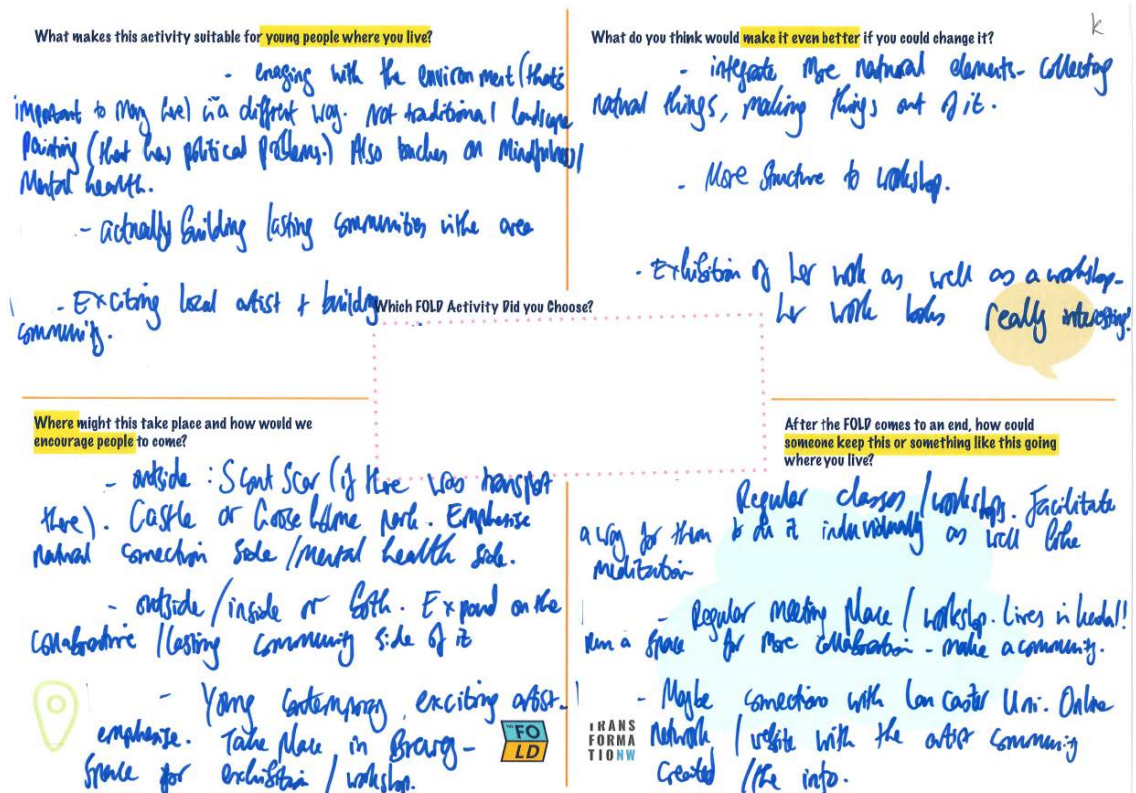 k
What makes this activity suitable for young people where you live?
- enaging with the environment (that's
important to many here) in a different way. Not traditional landscape
painting (that has political problems.) Also touches on Mindfulness/
Mental health.
- actually building lasting communities in the area
- Exciting local artist + building
community.
What do you think would make it even better if you could change it?
- integrate more natural elements - collecting
natural things, making things out of it.
- More structure to workshop.
- Exhibition of her work as well as a workshop -
her work looks really interesting!
Which FOLD Activity Did you Choose?
Where might this take place and how would we
encourage people to come?
- outside : Scout Scar (if there was transport
there). Castle or Goose Holme park. Emphasise
natural connection side / mental health side.
- outside / inside or both. Expand on the
collaborative / lasting community side of it
- Young contemporary exciting artist -
emphasise. Take place in Brewery -
space for exhibition / workshop.
THE FO
LD
After the FOLD comes to an end, how could
someone keep this or something like this going
where you live?
Regular classes / workshops. Facilitate
a way for them to do it individually as well like
meditation
- Regular meeting place / workshop. Lives in Kendal!
Run a space for more collaboration - make a community.
- Maybe connections with Lancaster Uni. Online
network / website with the artist community
created / the info.
TRANS
FORMA
TIONW